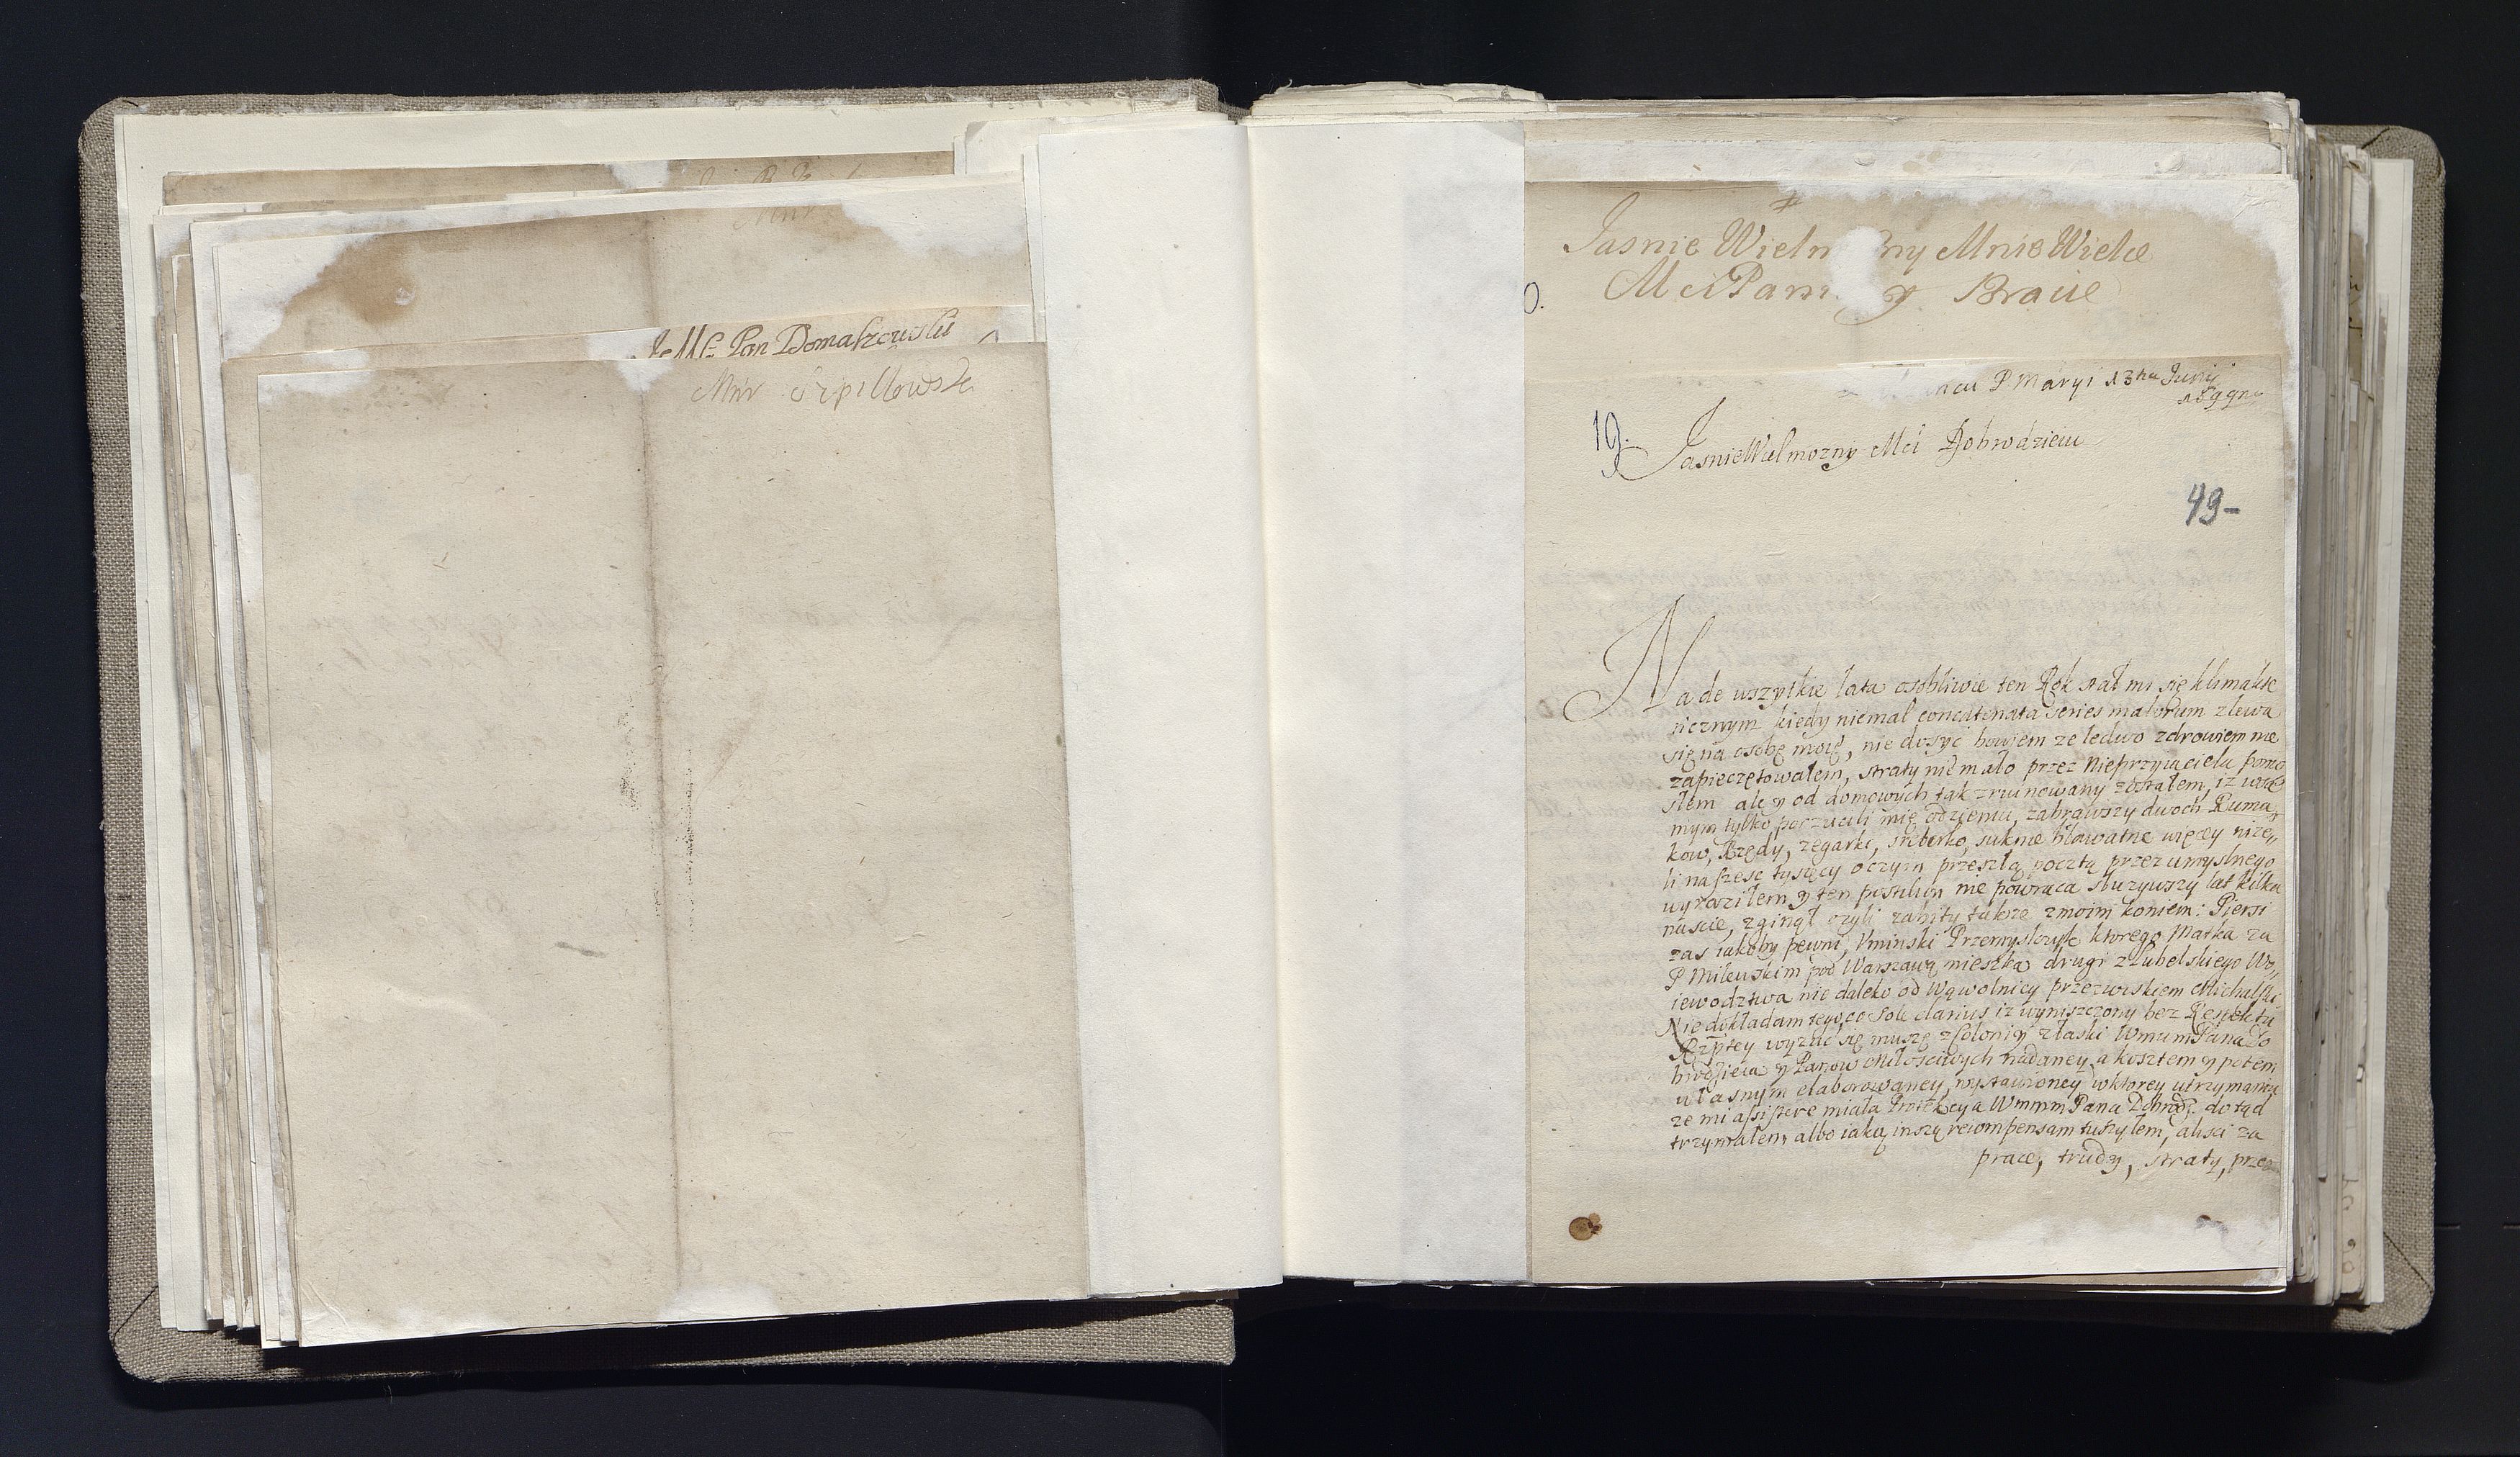 JeMsc Pan Domaszewski
Mnr
Jasnie Wieln ny Mnie Wielce
Mci Pan y Bracie
0.
P Maryi 13tia Junij
1699
19.
Jasnie Wielmozny Mci Dobrodzieiu
49-
Nade wszytkie lata osobliwie ten Rok stał mi się klimakte
ricznym kiedy niemal concatenata series malorum zlewa
się na osobę moię, nie dosyc bowiem ze ledwo zdrowiem nie
zapieczętowałem, straty nie mało przez Nieprzyiaciela ponio
słem ale y od domowych tak zruinowany zostałem, iz w
mym tylko porzucili mię odzieniu, zabrawszy dwoch Ruma
kow, Rzędy, zegarki, srebrko, suknie bławatne więcey niże,,
li na szesc tysięcy o czym przeszłą pocztą przez umyslnego
wyraziłem y ten postilion nie powraca słuzywszy lat kilka
nascie, zginął czyli zabity takze z moim koniem: Piersi
zas iakoby pewni, Uminski Przemyslczyk ktorego Matka za
P Milewskim pod Warszawą mieszka drugi z Lubelskiego Wo,,
iewodztwa nie daleko od Wąwolnicy przezwiskiem Michalski.
Nie dokładam tego, co sole clarius iz wyniszczony bez Respektu
Rzptey wyzuć się muszę z Coloniy z łaski WmumPana Do
brodzieia y Panow Miłosciwych nadaney, a kosztem y potem
własnym elaborowaney, wystawioney w ktorey utrzymaniu
ze mi assistere miała Protekcya Wmmm Pana Dobrodz. dotąd
trzymałem, albo iaką inszą recompensam tuszyłem, alisci za
prace, trudy, straty, przez